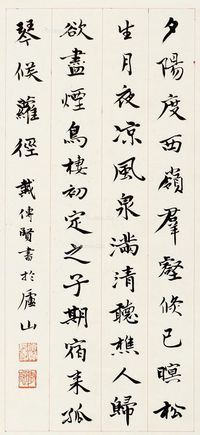 夕陽度西嶺羣壑倐已暝松
生月夜凉風泉滿清聽樵人歸
欲盡煙鳥棲初定之子期宿来孤
琴候蘿徑 戴傳賢書於廬山